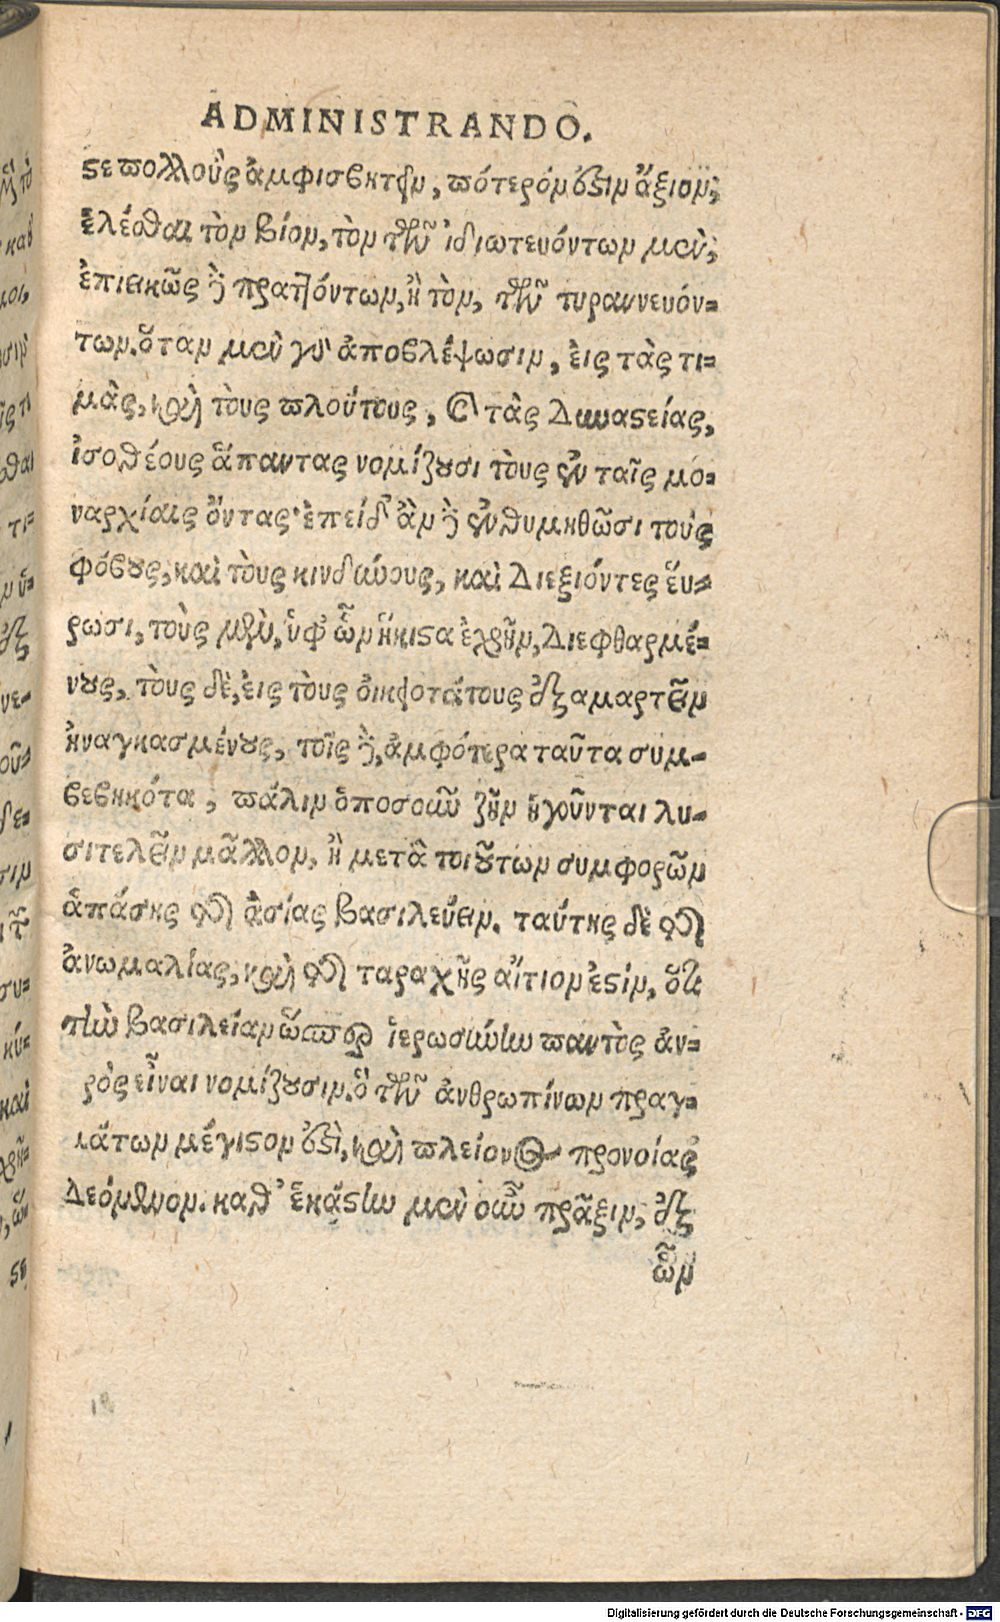 ADMINISTRANDO.
ϛε πολλοὺς ἀμφισβητεῖν, πότερόν ἐϛιν ἄξιον,
ἑλέσθαι τὸν βίον, τὸν τῶν ἰδιωτευόντων μὲν,
ἐπιεικῶς δὲ πραττόντων, ἢ τὸν, τῶν τυραννευόν=
των. ὅταν μὲν γὰρ ἀποβλέψωσιν, εἰς τὰς τι=
μὰς, καὶ τοὺς πλούτους, καὶ τὰς δυναϛείας,
ἰσοθέους ἅπαντας νομίζουσι τοὺς ἐν ταῖς μο=
ναρχίαις ὄντας· ἐπειδ' ἂν δὲ ἐνθυμηθῶσι τοὺς
φόβους, καὶ τοὺς κινδύνους, καὶ διεξιόντες εὕ=
ρωσι, τοὺς μὲν, ὑφ' ὧν ἥκιϛα ἐχρῆν, διεφθαρμέ=
νους, τοὺς δὲ, εἰς τοὺς οἰκειοτάτους ἐξαμαρτεῖν
ἠναγκασμένους, τοῖς δὲ, ἀμφότερα ταῦτα συμ=
βεβηκότα, πάλιν ὁποσοῦν ζῆν ἡγοῦνται λυ=
σιτελεῖν μᾶλλον, ἢ μετὰ τοιούτων συμφορῶν
ἁπάσης τῆς ἀσίας βασιλεύειν. ταύτης δὲ τῆς
ἀνωμαλίας, καὶ τῆς ταραχῆς αἴτιον ἐϛίν, ὅτι
τὴν βασιλείαν ὥσπερ ἱερωσύνην παντὸς ἀν=
ρὸς εἶναι νομίζουσιν. ὃ τῶν ἀνθρωπίνων πραγ=
μάτων μέγιϛον ἐϛὶ, καὶ πλείονος προνοίας
δεόμενον. καθ' ἑκάϛην μὲν οὖν πρᾶξιν, ἐξ
ὧν
Digitalisierung gefördert durch die Deutsche Forschungsgemeinschaft - DFG